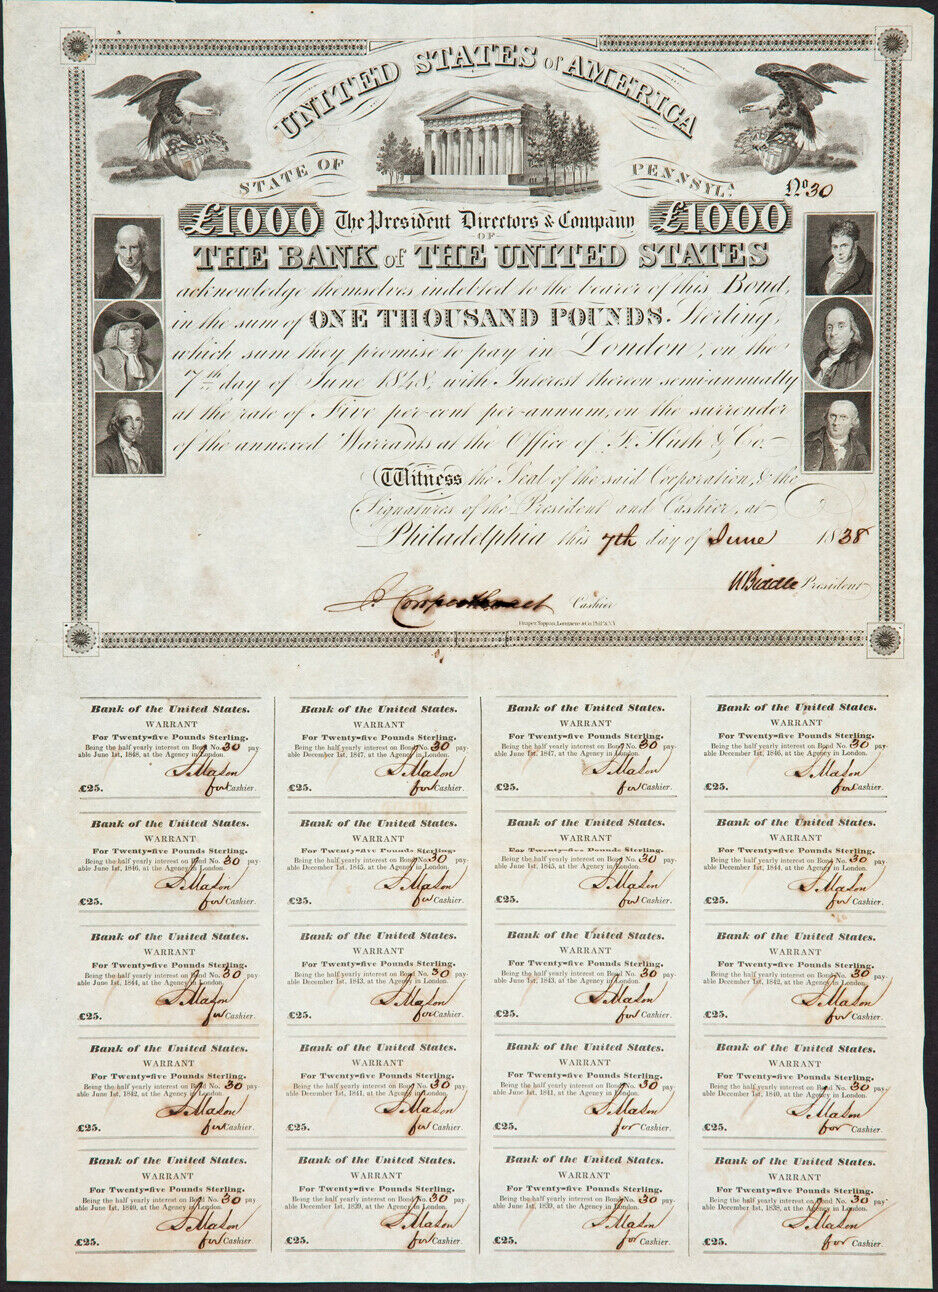 UNITED STATES of AMERICA
STATE OF PENNSYLᴬ
Nº 30
£1000 The President Directors & Company £1000
OF
THE BANK of THE UNITED STATES
acknowledge themselves indebted to the bearer of this Bond,
in the sum of ONE THOUSAND POUNDS. Sterling,
which sum they promise to pay in London, on the
7th day of June 1848, with Interest thereon semi-annually
at the rate of Five per-cent per-annum, on the surrender
of the annexed Warrants at the Office of F. Huth & Co.
Witness the Seal of the said Corporation, & the
Signatures of the President and Cashier, at
Philadelphia this 7th day of June 1838
N Biddle President
J. Cowperthwait Cashier
Draper, Toppan, Longacre & Co. Phila. & N.Y.
Bank of the United States.
WARRANT
For Twenty=five Pounds Sterling.
Being the half yearly interest on Bond No. 30 pay-
able June 1st, 1848, at the Agency in London.
S Mason
£25. for Cashier.
Bank of the United States.
WARRANT
For Twenty=five Pounds Sterling.
Being the half yearly interest on Bond No. 30 pay-
able December 1st, 1847, at the Agency in London.
S Mason
£25. for Cashier.
Bank of the United States.
WARRANT
For Twenty=five Pounds Sterling.
Being the half yearly interest on Bond No. 30 pay-
able June 1st, 1847, at the Agency in London.
S Mason
£25. for Cashier.
Bank of the United States.
WARRANT
For Twenty=five Pounds Sterling.
Being the half yearly interest on Bond No. 30 pay-
able December 1st, 1846, at the Agency in London.
S Mason
£25. for Cashier.
Bank of the United States.
WARRANT
For Twenty=five Pounds Sterling.
Being the half yearly interest on Bond No. 30 pay-
able June 1st, 1846, at the Agency in London.
S Mason
£25. for Cashier.
Bank of the United States.
WARRANT
For Twenty=five Pounds Sterling.
Being the half yearly interest on Bond No. 30 pay-
able December 1st, 1845, at the Agency in London.
S Mason
£25. for Cashier.
Bank of the United States.
WARRANT
For Twenty=five Pounds Sterling.
Being the half yearly interest on Bond No. 30 pay-
able June 1st, 1845, at the Agency in London.
S Mason
£25. for Cashier.
Bank of the United States.
WARRANT
For Twenty=five Pounds Sterling.
Being the half yearly interest on Bond No. 30 pay-
able December 1st, 1844, at the Agency in London.
S Mason
£25. for Cashier.
Bank of the United States.
WARRANT
For Twenty=five Pounds Sterling.
Being the half yearly interest on Bond No. 30 pay-
able June 1st, 1844, at the Agency in London.
S Mason
£25. for Cashier.
Bank of the United States.
WARRANT
For Twenty=five Pounds Sterling.
Being the half yearly interest on Bond No. 30 pay-
able December 1st, 1843, at the Agency in London.
S Mason
£25. for Cashier.
Bank of the United States.
WARRANT
For Twenty=five Pounds Sterling.
Being the half yearly interest on Bond No. 30 pay-
able June 1st, 1843, at the Agency in London.
S Mason
£25. for Cashier.
Bank of the United States.
WARRANT
For Twenty=five Pounds Sterling.
Being the half yearly interest on Bond No. 30 pay-
able December 1st, 1842, at the Agency in London.
S Mason
£25. for Cashier.
Bank of the United States.
WARRANT
For Twenty=five Pounds Sterling.
Being the half yearly interest on Bond No. 30 pay-
able June 1st, 1842, at the Agency in London.
S Mason
£25. for Cashier.
Bank of the United States.
WARRANT
For Twenty=five Pounds Sterling.
Being the half yearly interest on Bond No. 30 pay-
able December 1st, 1841, at the Agency in London.
S Mason
£25. for Cashier.
Bank of the United States.
WARRANT
For Twenty=five Pounds Sterling.
Being the half yearly interest on Bond No. 30 pay-
able June 1st, 1841, at the Agency in London.
S Mason
£25. for Cashier.
Bank of the United States.
WARRANT
For Twenty=five Pounds Sterling.
Being the half yearly interest on Bond No. 30 pay-
able December 1st, 1840, at the Agency in London.
S Mason
£25. for Cashier.
Bank of the United States.
WARRANT
For Twenty=five Pounds Sterling.
Being the half yearly interest on Bond No. 30 pay-
able June 1st, 1840, at the Agency in London.
S Mason
£25. for Cashier.
Bank of the United States.
WARRANT
For Twenty=five Pounds Sterling.
Being the half yearly interest on Bond No. 30 pay-
able December 1st, 1839, at the Agency in London.
S Mason
£25. for Cashier.
Bank of the United States.
WARRANT
For Twenty=five Pounds Sterling.
Being the half yearly interest on Bond No. 30 pay-
able June 1st, 1839, at the Agency in London.
S Mason
£25. for Cashier.
Bank of the United States.
WARRANT
For Twenty=five Pounds Sterling.
Being the half yearly interest on Bond No. 30 pay-
able December 1st, 1838, at the Agency in London.
S Mason
£25. for Cashier.